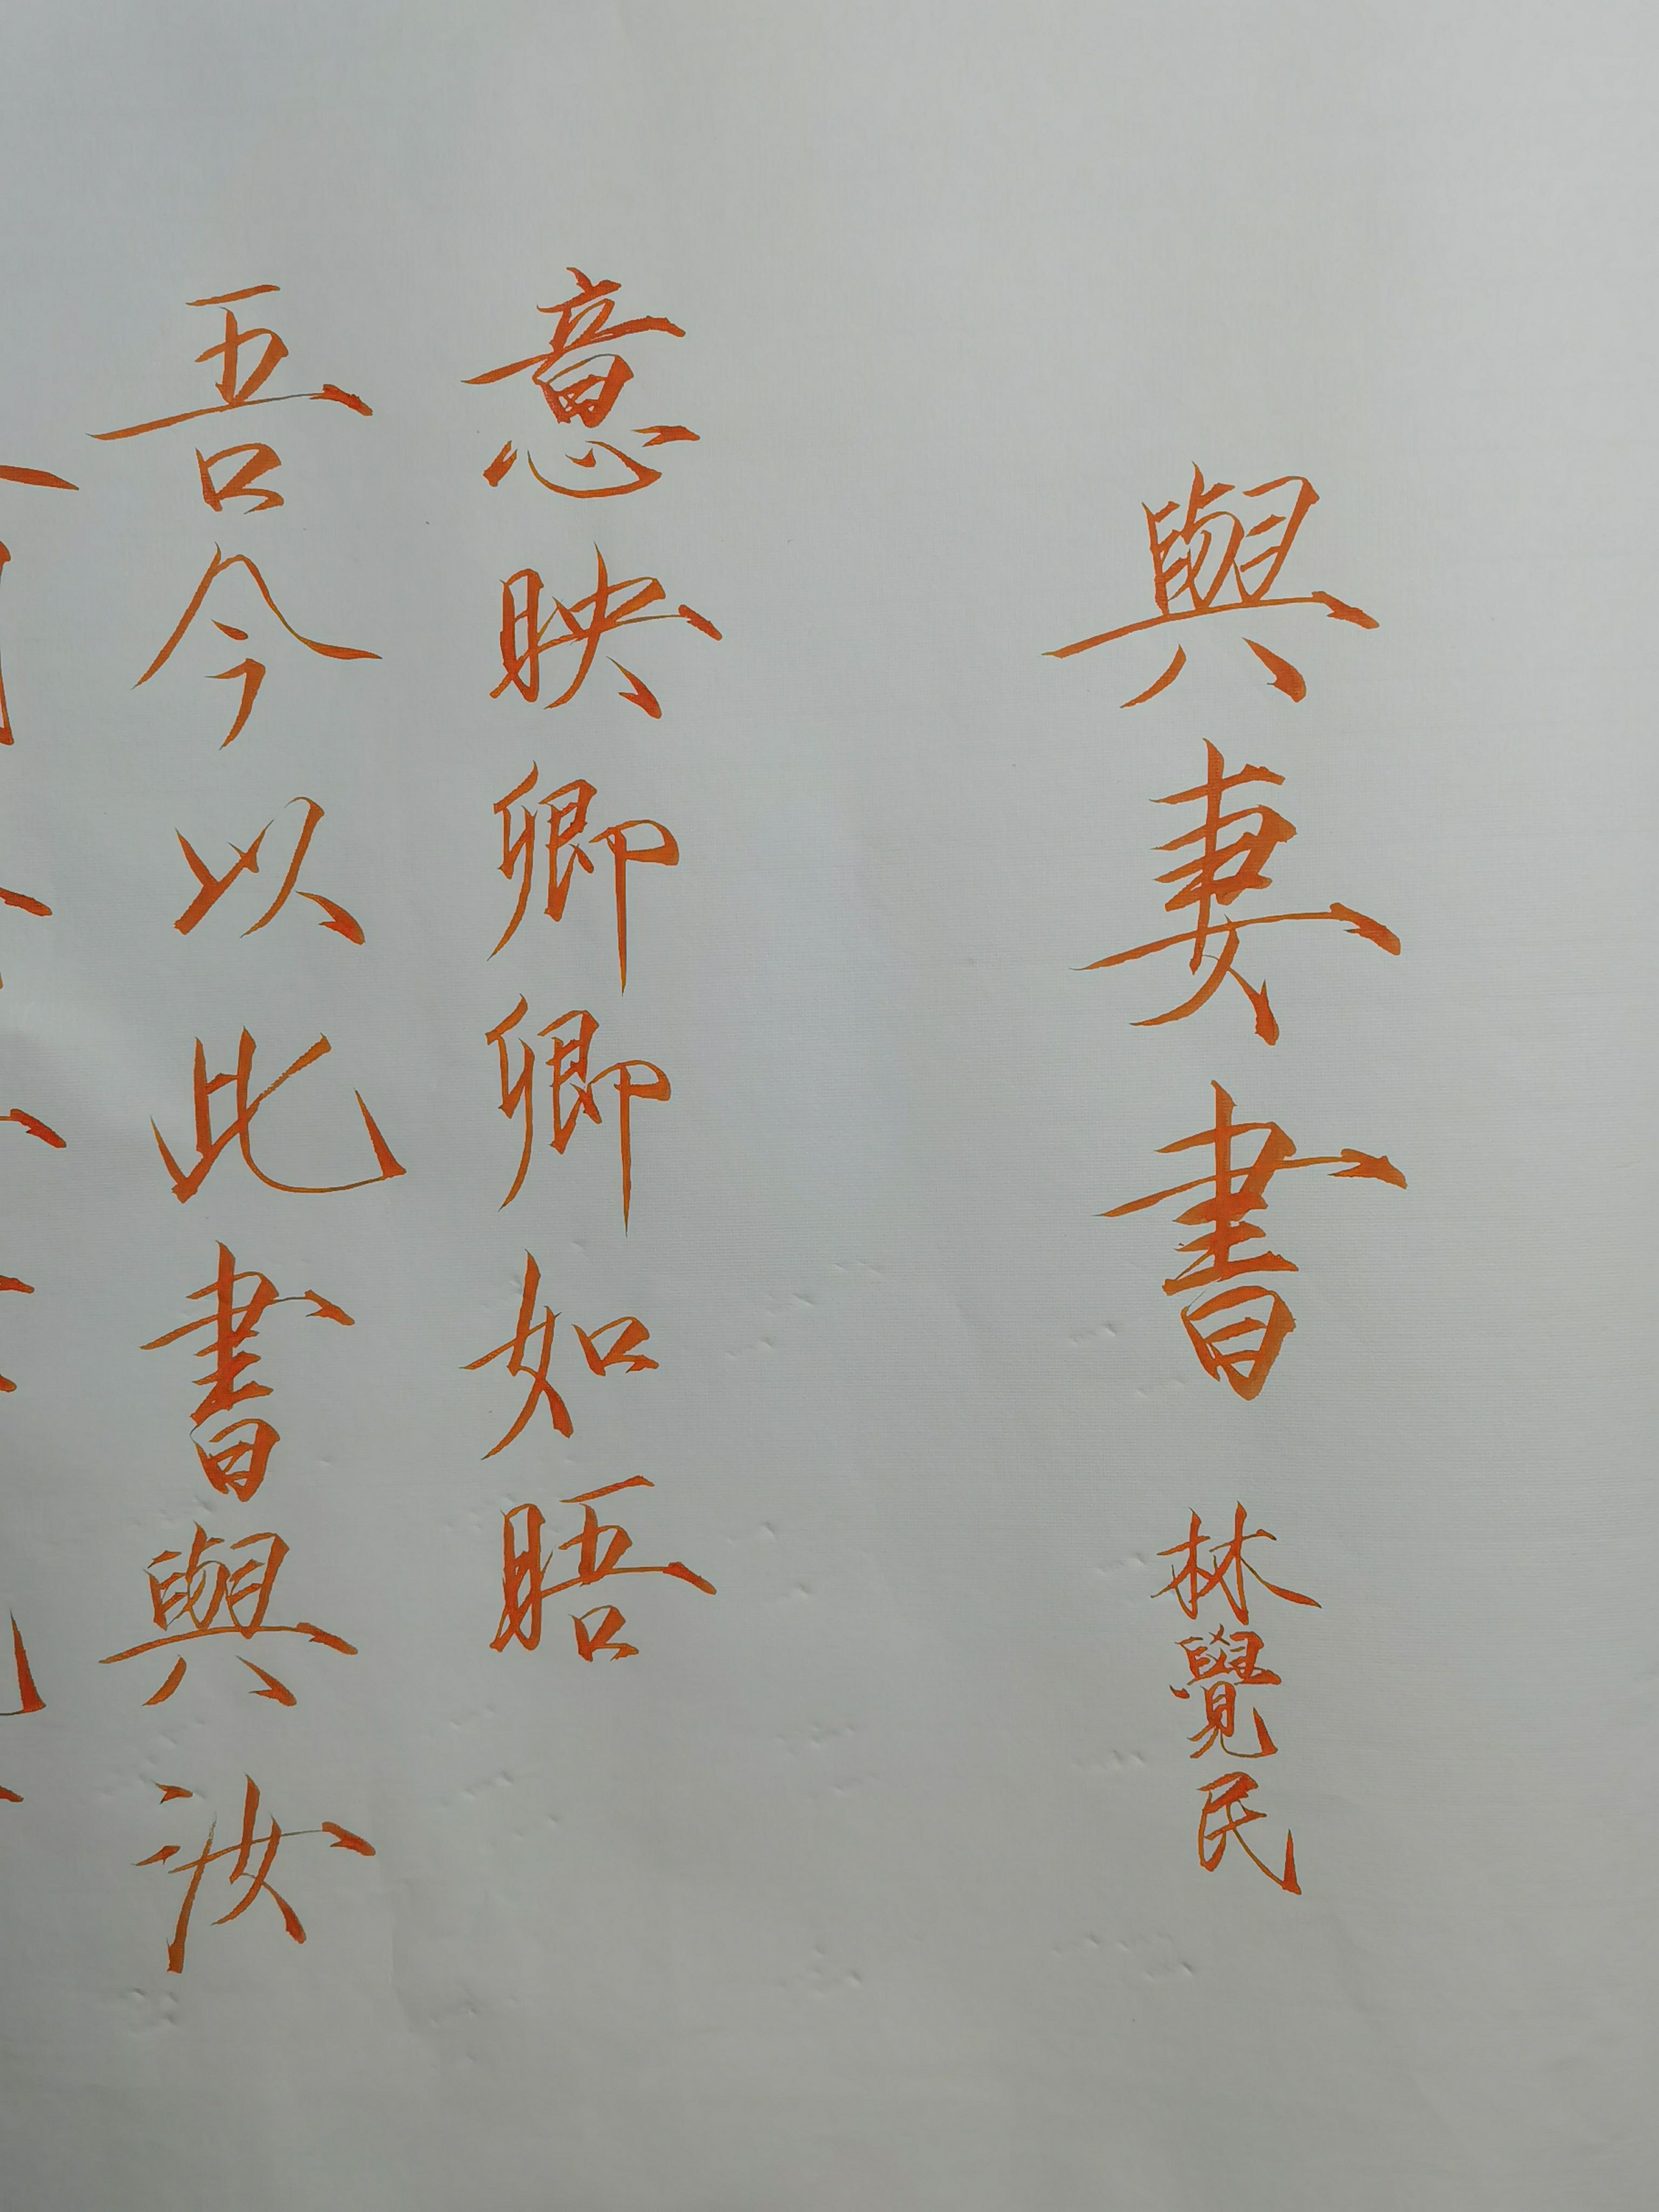 與妻書 林覺民
意映卿卿如晤
吾今以此書與汝